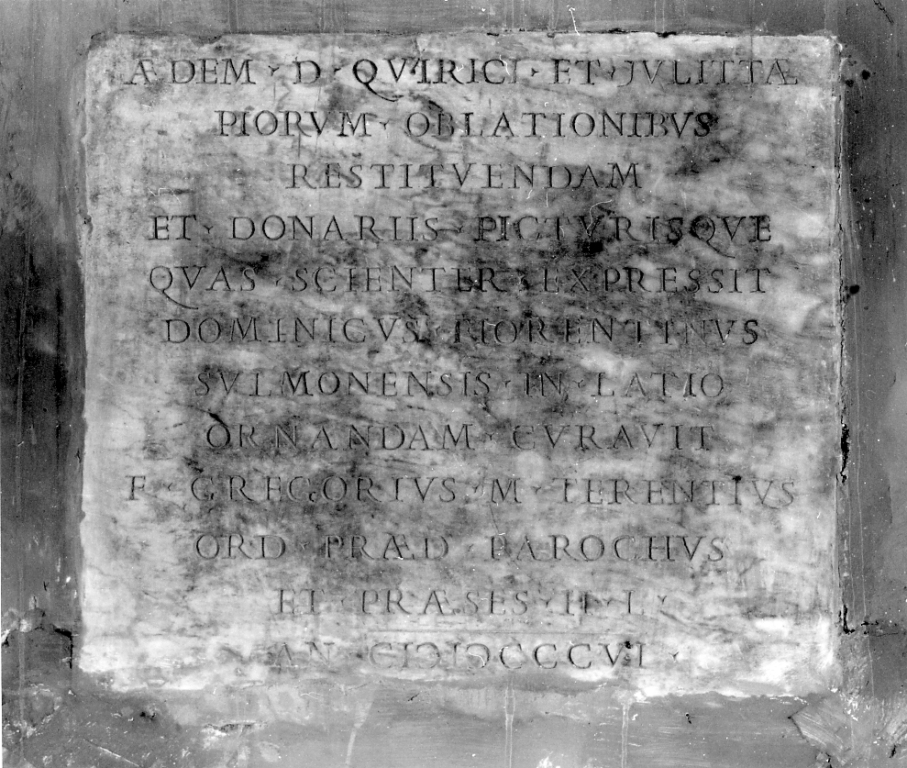 ÆDEM · D · QVIRICI · ET · JVLITTÆ
PIORVM · OBLATIONIBVS
RESTITVENDAM
ET · DONARIIS · PICTVRISQVE
QVAS · SCIENTER · EXPRESSIT
DOMINICVS · FIORENTINVS
SVLMONENSIS · IN · LATIO
ORNANDAM · CVRAVIT
F · GREGORIVS · M · TERENTIVS
ORD · PRÆD · PAROCHVS
ET · PRÆSES · H · L ·
AN · CIƆIƆCCCVI ·